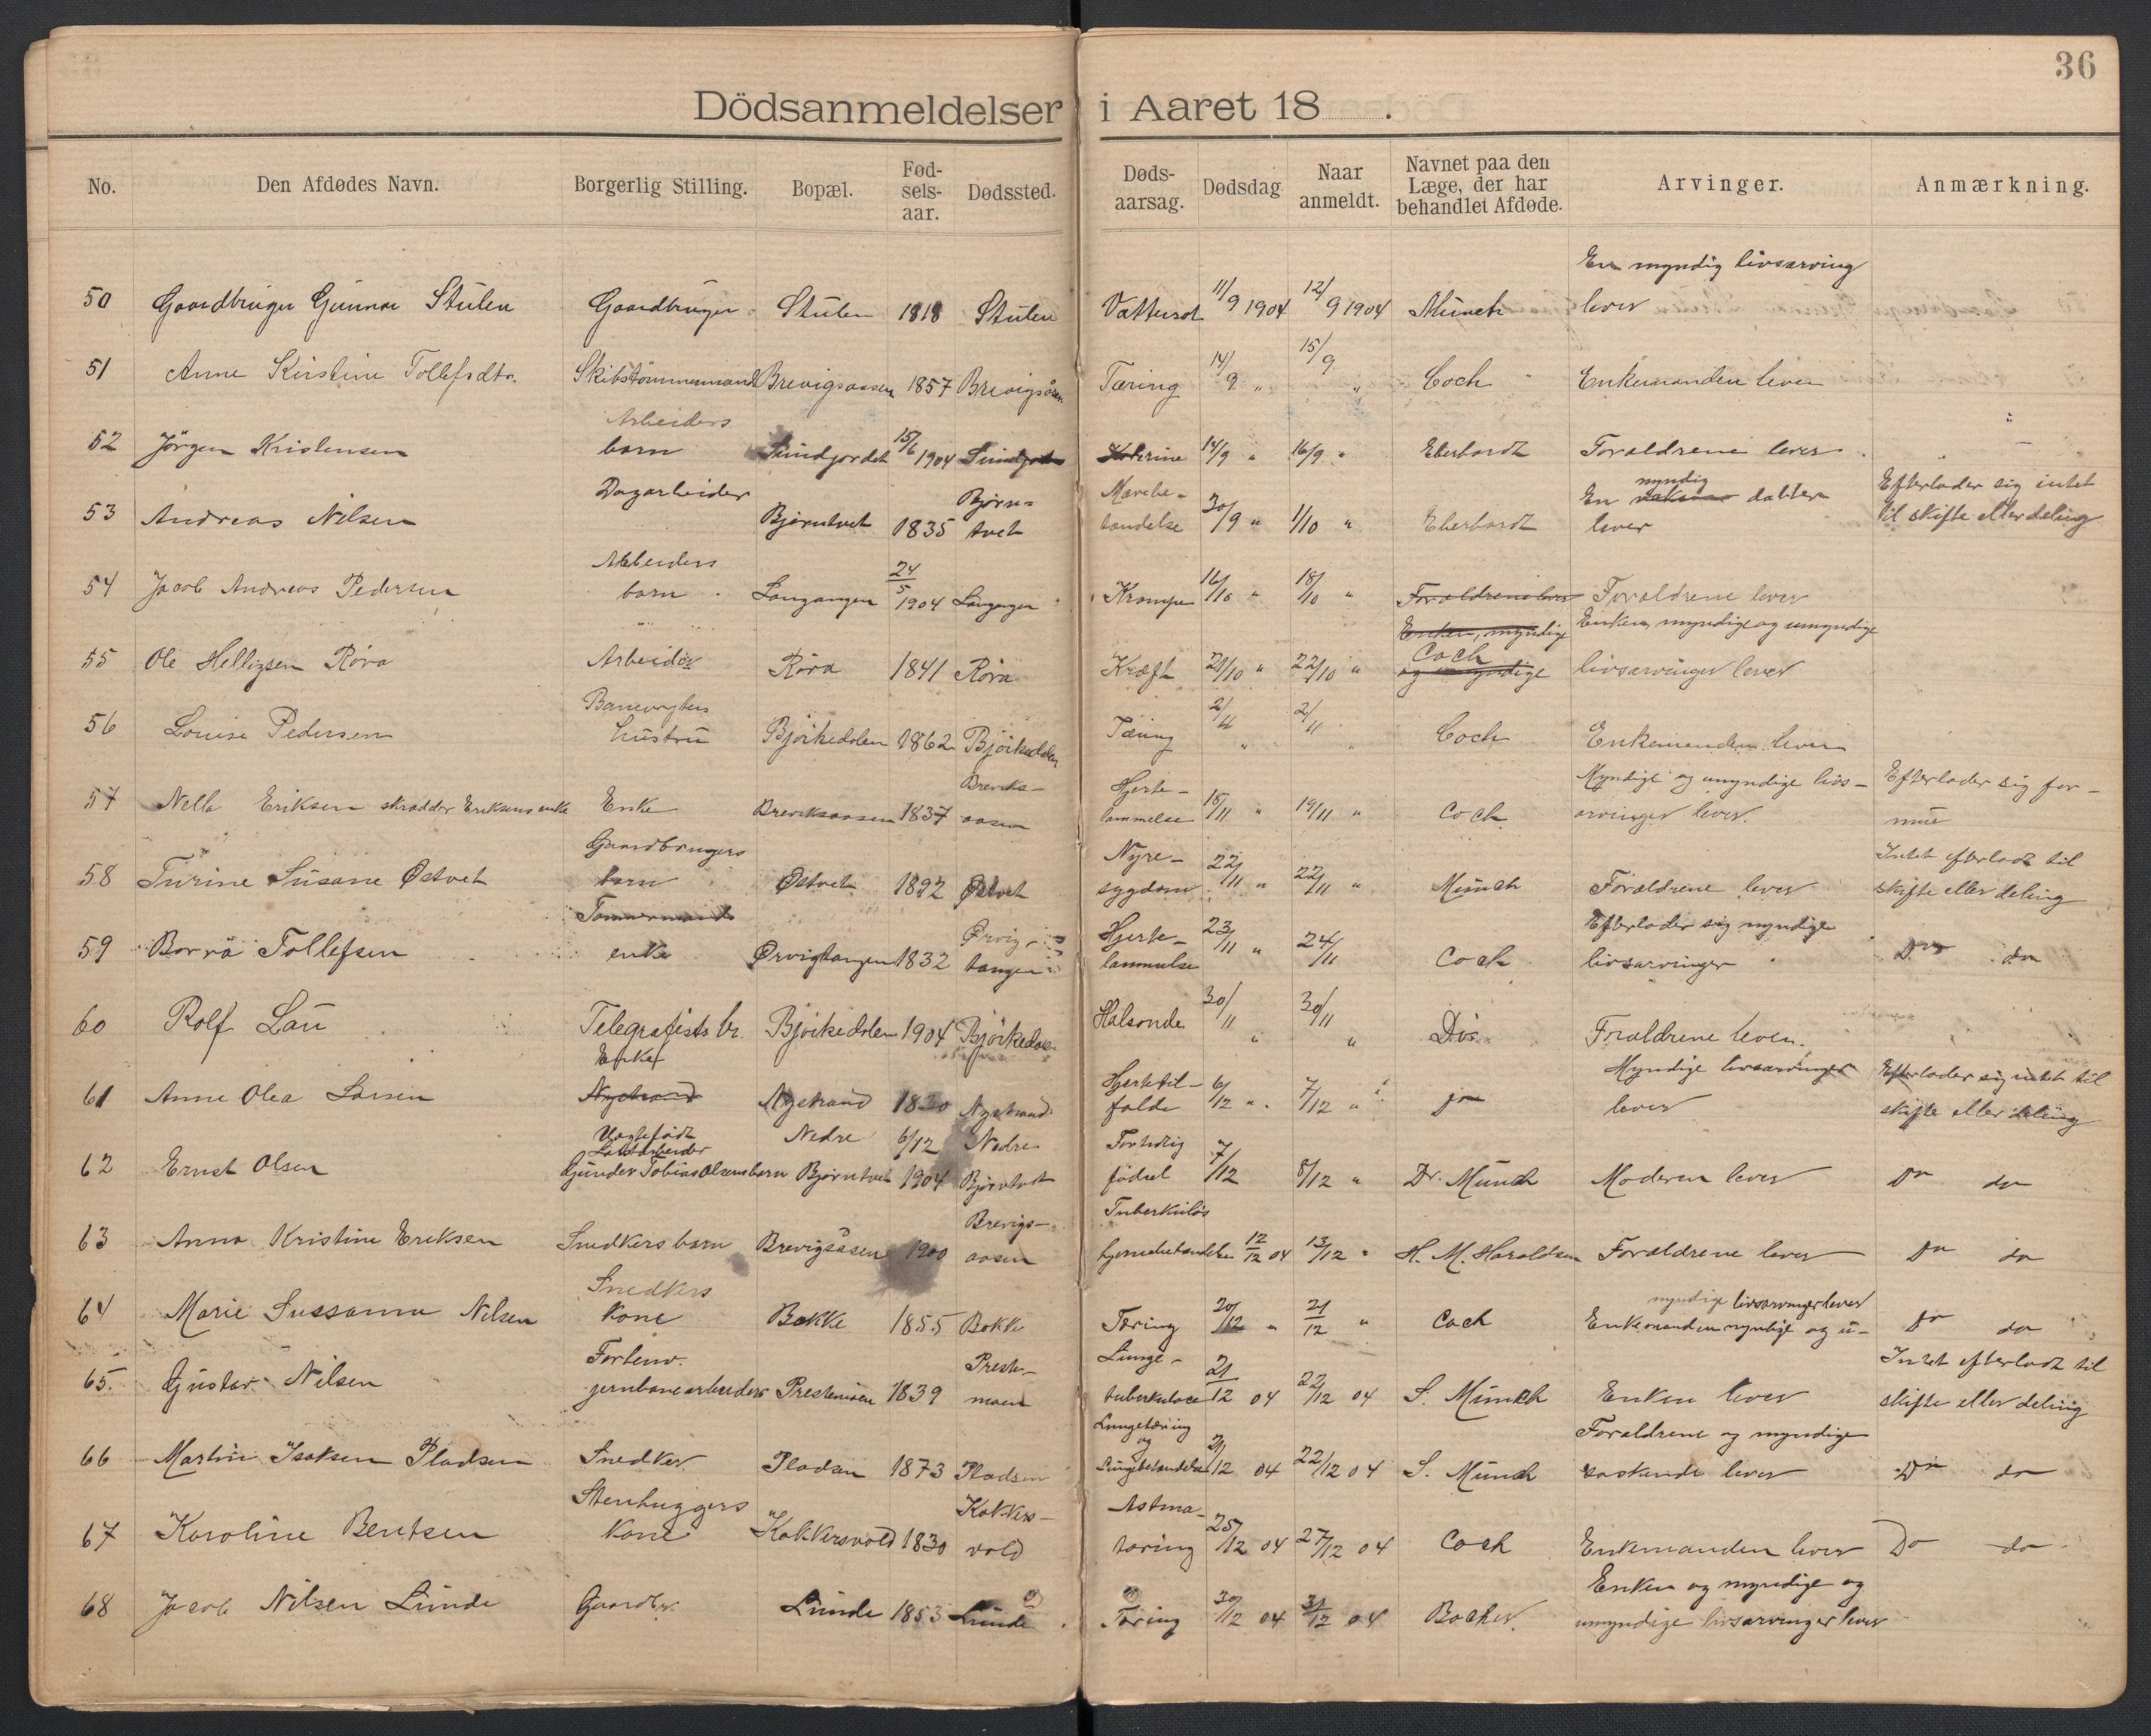 36
Dödsanmeldelser i Aaret 18 .
No. Den Afdødes Navn. Borgerlig Stilling. Bopæl. Fødselsaar. Dødssted. Dødsaarsag. Dødsdag Naar anmeldt. Navnet paa den Læge, der har behandlet Afdøde. Arvinger. Anmærkning.
En myndig livsarving
50 Gaardbruger Gunnar Stulen Gaardbruger Stulen 1818 Stulen Vattersot 11/9 1904 12/9 1904 Münch lever
51 Anne Kirstine Tollefsdtr. Skibstömmermand Brevigsaasen 1857 Brevigsåsen Tæring 14/9 " 15/9 " Coch Enkemanden lever
Arbeiders
52 Jörgen Kristensen barn Sundjordet 15/6 1904 14/9 " 16/9 " Eberhardt Forældrene lever
Dagarbeider Bjørn= Mavebe- myndig Efterlader sig intet
53 Andreas Nilsen Bjørntvet 1835 tvet tændelse 30/9 " 1/10 " Eberhardt En datter lever til skifte eller deling
Arbeiders 24/5
54 Jacob Andreas Pedersen barn Langangen 1904 Langangen Krampe 16/10 " 18/10 " Forældrene lever Forældrene lever
Enken, myndige Enken, myndige og umyndige
55 Ole Helligsen Röra Arbeider Röra 1841 Röra Kræft 21/10 " 22/10 " Coch og umyndige livsarvinger lever
Banevogters
56 Louise Pedersen hustru Björkedalen 1862 Björkedalen Tæring 2/11 " 2/11 " Coch Enkemanden lever
Breviks- Hjerte- Myndige og umyndige livs- Efterlader sig for-
57 Nella Eriksen skrædder Eriksens enke Enke Breviksaasen 1837 aasen lammelse 18/11 " 19/11 " Coch arvinger lever. mue
Gaardbrugers Nyre- Intet efterladt til
58 Turine Susane Østvet barn Østvet 1892 Østvet sygdom 22/11 " 22/11 " Münch Forældrene lever skifte eller deling
Tømmermands Ørvig- Hjerte- Efterlader sig myndige
59 Borrå Tollefsen enke Ørvigtangen 1832 tangen lammelse 23/11 " 24/11 Coch livsarvinger Do do
60 Rolf Lau Telegrafists br. Björkedalen 1904 Björkedalen Halsonde 30/11 " 30/11 " Do Fraldrene lever.
Enke Hjertetil- Myndige livsarvinger Efterlader sig intet til
61 Anne Olea Larsen Nystrand Nystrand 1830 Nystrand falde 6/12 " 7/12 " lever skifte eller deling
Uægtefödt Løstarbeider Nedre 6/12 Nedre Fortidlig
62 Ernst Olsen Gunder Tobias Olsens barn Bjørntvet 1904 Bjørntvet födsel 7/12 8/12 " Dr. Münch Moderen lever Do do
Brevigs- Tuberkuløs
63 Anna Kristine Eriksen Snedkers barn Brevigsåsen 1900 aasen hjernebetændelse 12/12 04 13/12 " H. M. Haraldsen Forældrene lever Do do
Snedkers myndige livsarvinger lever
64 Marie Sussanna Nilsen kone Bakke 1855 Bakke Tæring 20/12 " 21/12 " Coch Enkemanden myndige og u- Do do
Forhenv. Preste- Lunge- Intet efterladt til
65. Gustav Nilsen jernbanearbeider Prestemoen 1839 moen tuberkulose 21/12 04 22/12 04 S. Münch Enken lever skifte eller deling
Lungetæring og Forældrene og myndige
66 Martin Isaksen Pladsen Snedker Pladsen 1873 Pladsen Lungebetændelse 21/12 04 22/12 04 S. Münch søskende lever Do do
Stenhuggers Kokkers- Astma-
67 Karoline Bentsen kone Kokkersvold 1830 vold tæring 25/12 04 27/12 04 Coch Enkemanden lever Do do
Enken og myndige og
68 Jacob Nilsen Lunde Gaardbr. Lunde 1853 Lunde Tæring 30/12 04 31/12 04 umyndige livsarvinger lever